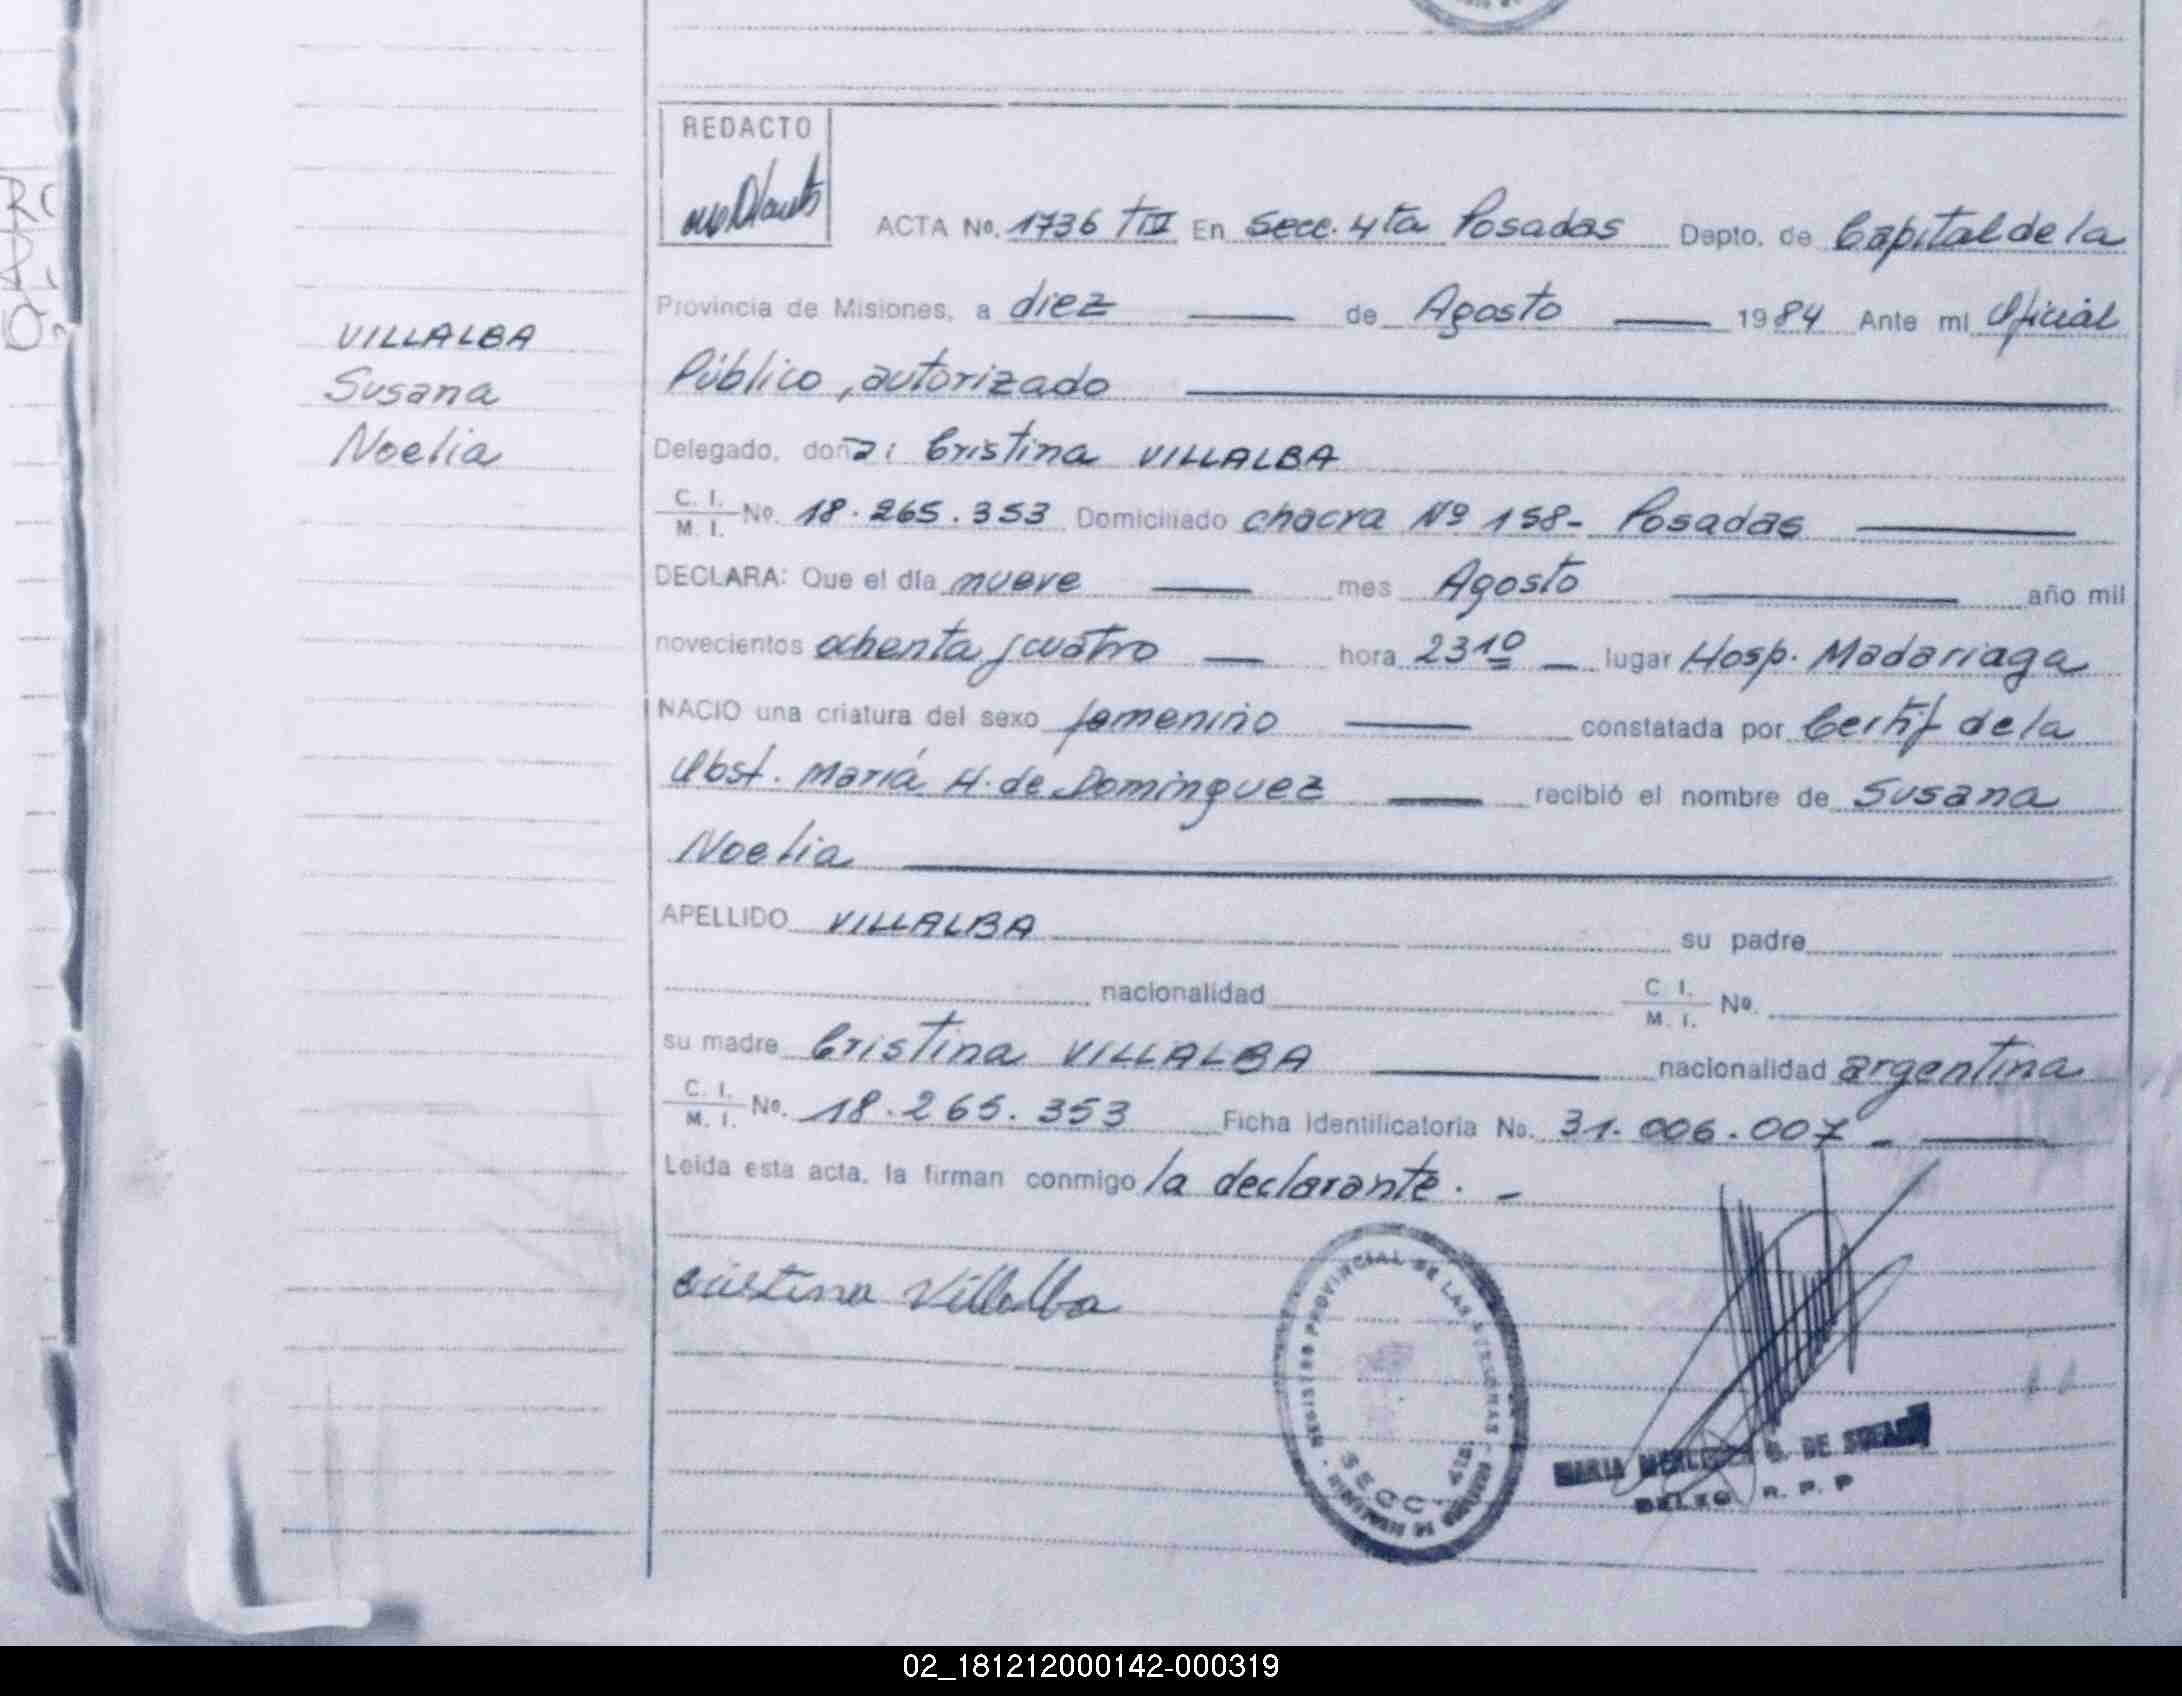 REDACTO
ACTA No. 1736 TIV En Secc. 4ta Posadas Depto. de Capital de la
Provincia de Misiones, a diez de Agosto 1984 Ante mi Oficial
Público, autorizado
VILLALBA
Susana
Noelia
Delegado, doña: Cristina VILLALBA
C. I.
M. I. No. 18.265.353 Domiciliado chacra Nº 158- Posadas
DECLARA: Que el día nueve mes Agosto año mil
novecientos ochenta y cuatro hora 23 10 lugar Hosp. Madariaga
NACIO una criatura del sexo femenino constatada por Certif de la
Obst. María H. de Dominguez recibió el nombre de Susana
Noelia
APELLIDO VILLALBA su padre
nacionalidad C. I.
M. I. No.
su madre Cristina VILLALBA nacionalidad argentina
C. I.
M. I. No. 18.265.353 Ficha Identificatoria No. 31.006.007-
Leída esta acta, la firman conmigo la declarante. -
Cristina Villalba
REGISTRO PROVINCIAL DE LAS PERSONAS
SECC. 4ta.
MARIA DE
R. P. P
02_181212000142-000319